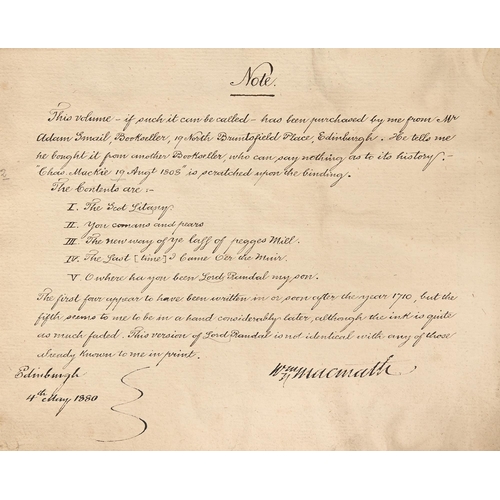 Note.
This volume - if such it can be called - has been purchased by me from Mr
Adam Smail, Bookseller, 19 North Bruntsfield Place, Edinburgh. He tells me
he bought it from another Bookseller, who can say nothing as to its history. -
"Chas. Mackie 19 Augt. 1808" is scratched upon the binding.
The Contents are :-
I. The Scot Litany.
II. You comans and pears
III. The new way of ye laff of pegges Mill.
IV. The Last [time] I Came O'er the Muir.
V. O where ha you been Lord Randal my son.
The first four appear to have been written in or soon after the year 1710, but the
fifth seems to me to be in a hand considerably later, although the ink is quite
as much faded. This version of Lord Randal is not identical with any of those
already known to me in print.
Edinburgh
4th May 1880
Wm Macmath